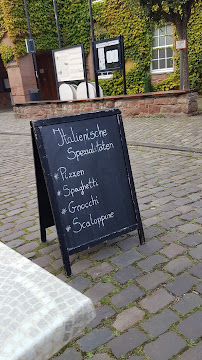 Italienische
Spezialitäten
* Pizzen
* Spaghetti
* Gnocchi
* Scaloppine